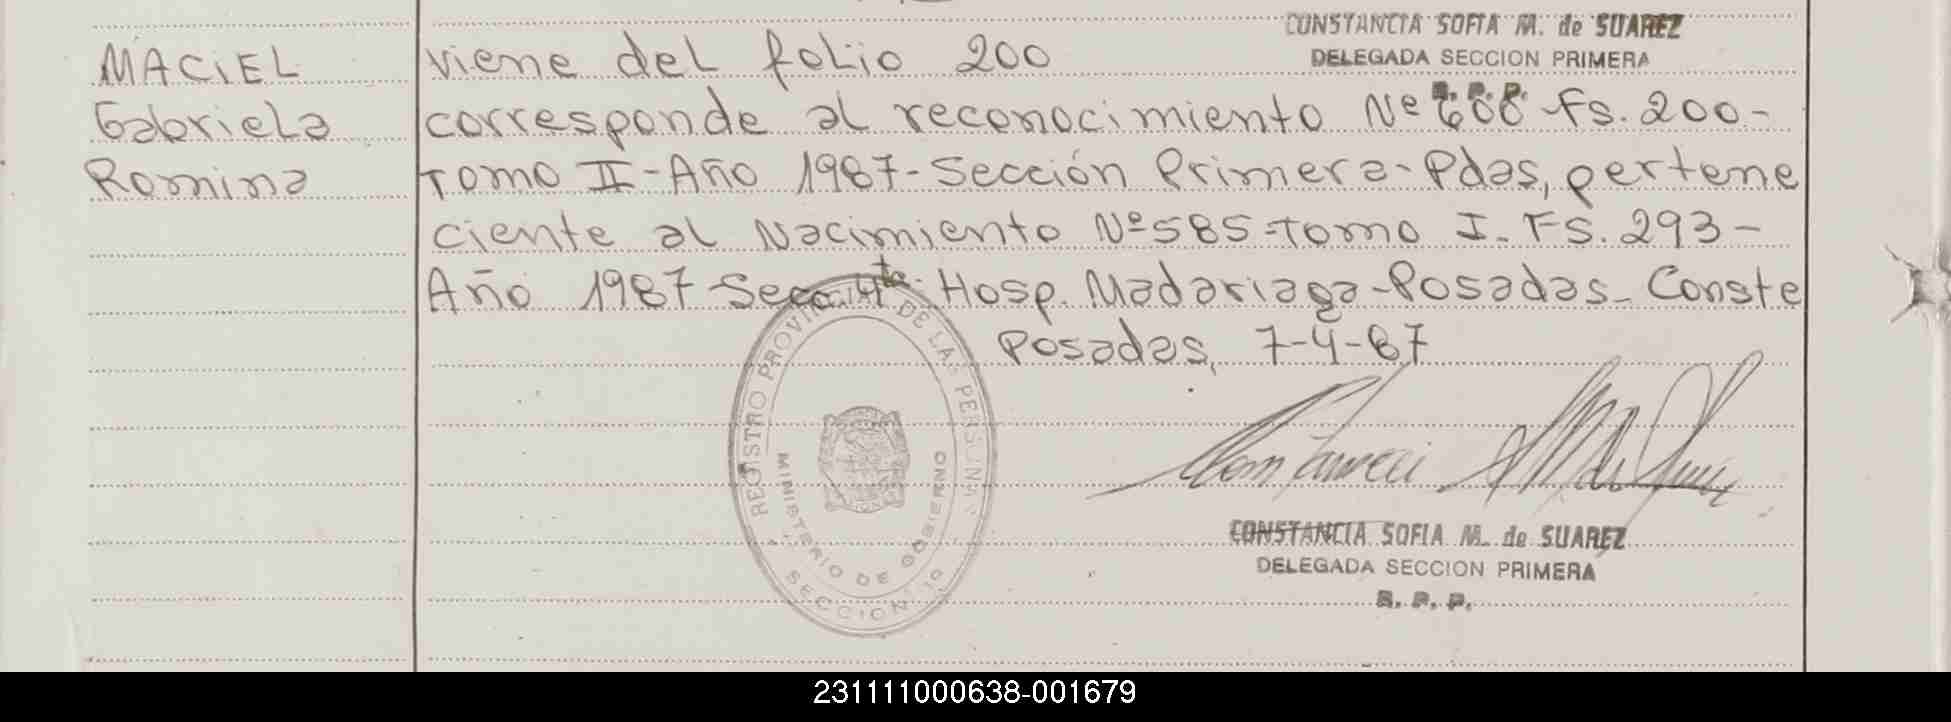 CONSTANCIA SOFIA M. de SUAREZ
DELEGADA SECCION PRIMERA
R. P. P.
MACIEL
Gabriela
Romina
viene del folio 200
corresponde al reconocimiento Nº Fs. 200-
Tomo II-Año 1987-Sección Primera-Pdas, pertene
ciente al Nacimiento Nº585-Tomo I-Fs. 293-
Año 1987-Secc. 4ta Hosp. Madariaga-Posadas-Conste
Posadas, 7-4-87
REGISTRO PROVINCIAL DE LAS PERSONAS
MINISTERIO DE GOBIERNO
SECCION 1º
CONSTANCIA SOFIA M. de SUAREZ
DELEGADA SECCION PRIMERA
R. P. P.
231111000638-001679